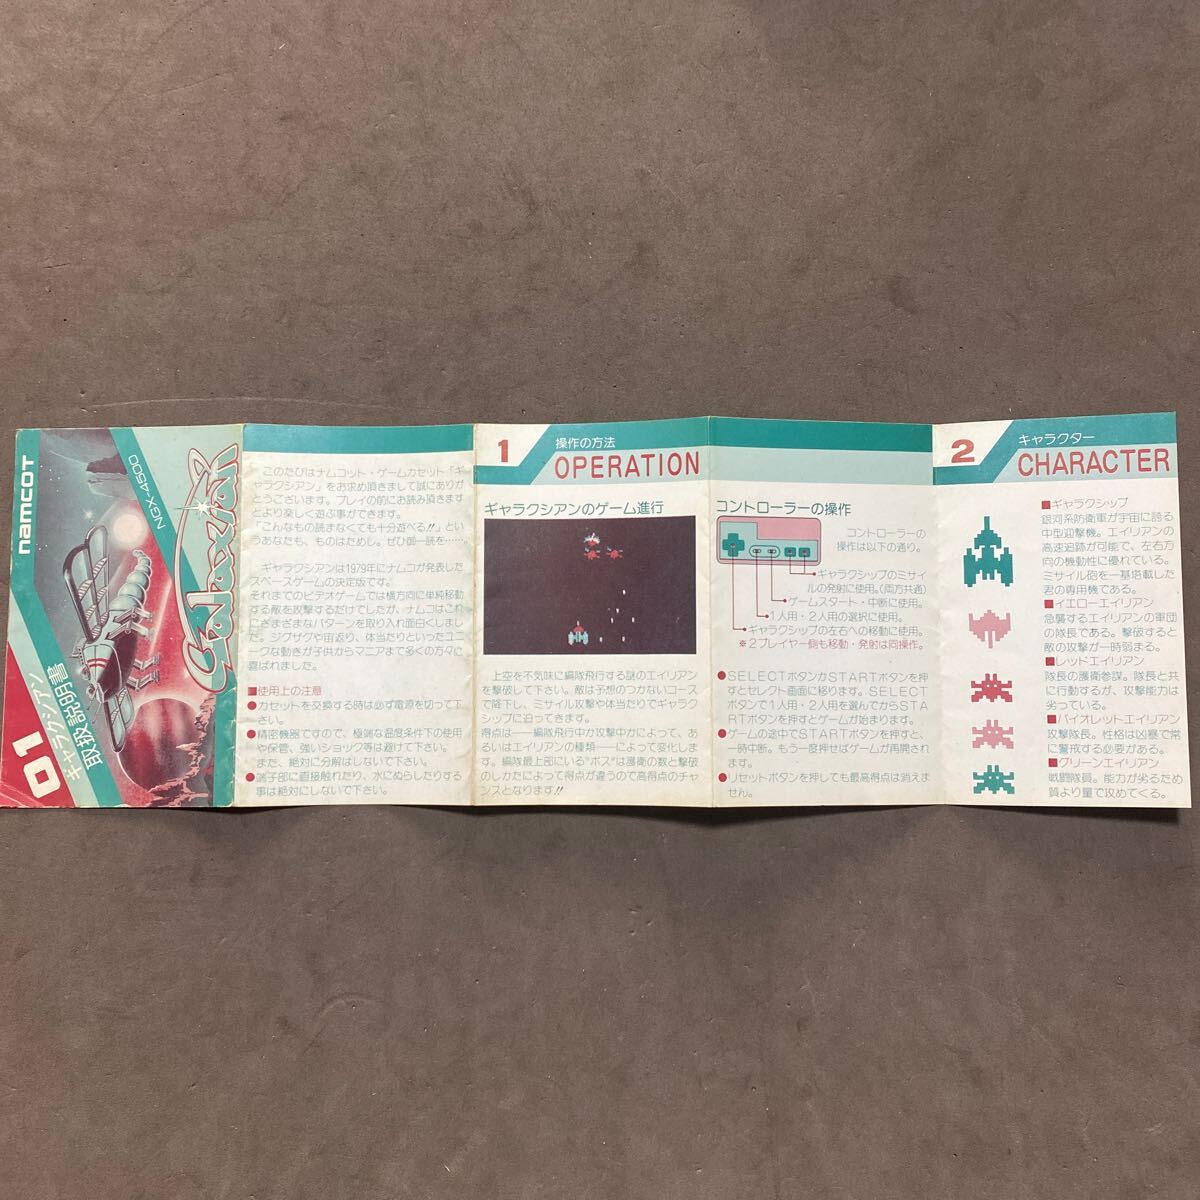 namcot
NGX-4500
Galaxian
01
ギャラクシアン
取扱説明書
このたびはナムコット・ゲームカセット「ギ
ャラクシアン」をお求め頂きまして誠にありが
とうございます。プレイの前にお読み頂きます
とより楽しく遊ぶ事ができます。
「こんなもの読まなくても十分遊べる!!」とい
うあなたも、ものはためし。ぜひ御一読を……。
ギャラクシアンは1979年にナムコが発表した
スペースゲームの決定版です。
それまでのビデオゲームでは横方向に単純移動
する敵を攻撃するだけでしたが、ナムコはこれ
にさまざまなパターンを取り入れ面白くしまし
た。ジグザグや宙返り、体当たりといったユニ
ークな動きが子供からマニアまで多くの方々に
喜ばれました。
■使用上の注意
●カセットを交換する時は必ず電源を切って下
さい。
●精密機器ですので、極端な温度条件下での使用
や保管、強いショック等は避けて下さい。
また、絶対に分解はしないで下さい。
●端子部に直接触れたり、水にぬらしたりする
事は絶対にしないで下さい。
1
操作の方法
OPERATION
ギャラクシアンのゲーム進行
上空を不気味に編隊飛行する謎のエイリアン
を撃破して下さい。敵は予想のつかないコース
で降下し、ミサイル攻撃や体当たりでギャラク
シップに迫ってきます。
得点は——編隊飛行中か攻撃中かによって、あ
るいはエイリアンの種類——によって変化しま
す。編隊最上部にいる"ボス"は護衛の数と撃破
のしかたによって得点が違うので高得点のチャ
ンスとなります!!
コントローラーの操作
コントローラーの
操作は以下の通り。
ギャラクシップのミサイ
ルの発射に使用。(両方共通)
ゲームスタート・中断に使用。
1人用・2人用の選択に使用。
ギャラクシップの左右への移動に使用。
※2プレイヤー側も移動・発射は同操作。
●SELECTボタンかSTARTボタンを押
すとセレクト画面に移ります。SELECT
ボタンで1人用・2人用を選んでからSTA
RTボタンを押すとゲームが始まります。
●ゲームの途中でSTARTボタンを押すと、
一時中断。もう一度押せばゲームが再開され
ます。
●リセットボタンを押しても最高得点は消えま
せん。
2
キャラクター
CHARACTER
■ギャラクシップ
銀河系防衛軍が宇宙に誇る
中型迎撃機。エイリアンの
高速追跡が可能で、左右方
向の機動性に優れている。
ミサイル砲を一基搭載した
君の専用機である。
■イエローエイリアン
急襲するエイリアンの軍団
の隊長である。撃破すると
敵の攻撃が一時弱まる。
■レッドエイリアン
隊長の護衛参謀。隊長と共
に行動するが、攻撃能力は
劣っている。
■バイオレットエイリアン
攻撃隊長。性格は凶暴で常
に警戒する必要がある。
■グリーンエイリアン
戦闘隊員。能力が劣るため
質より量で攻めてくる。